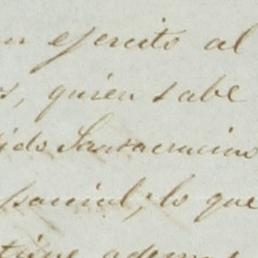 un ejercito al
s, quien sabe
ido Santacruzino
parcial; lo que
tiene ademas